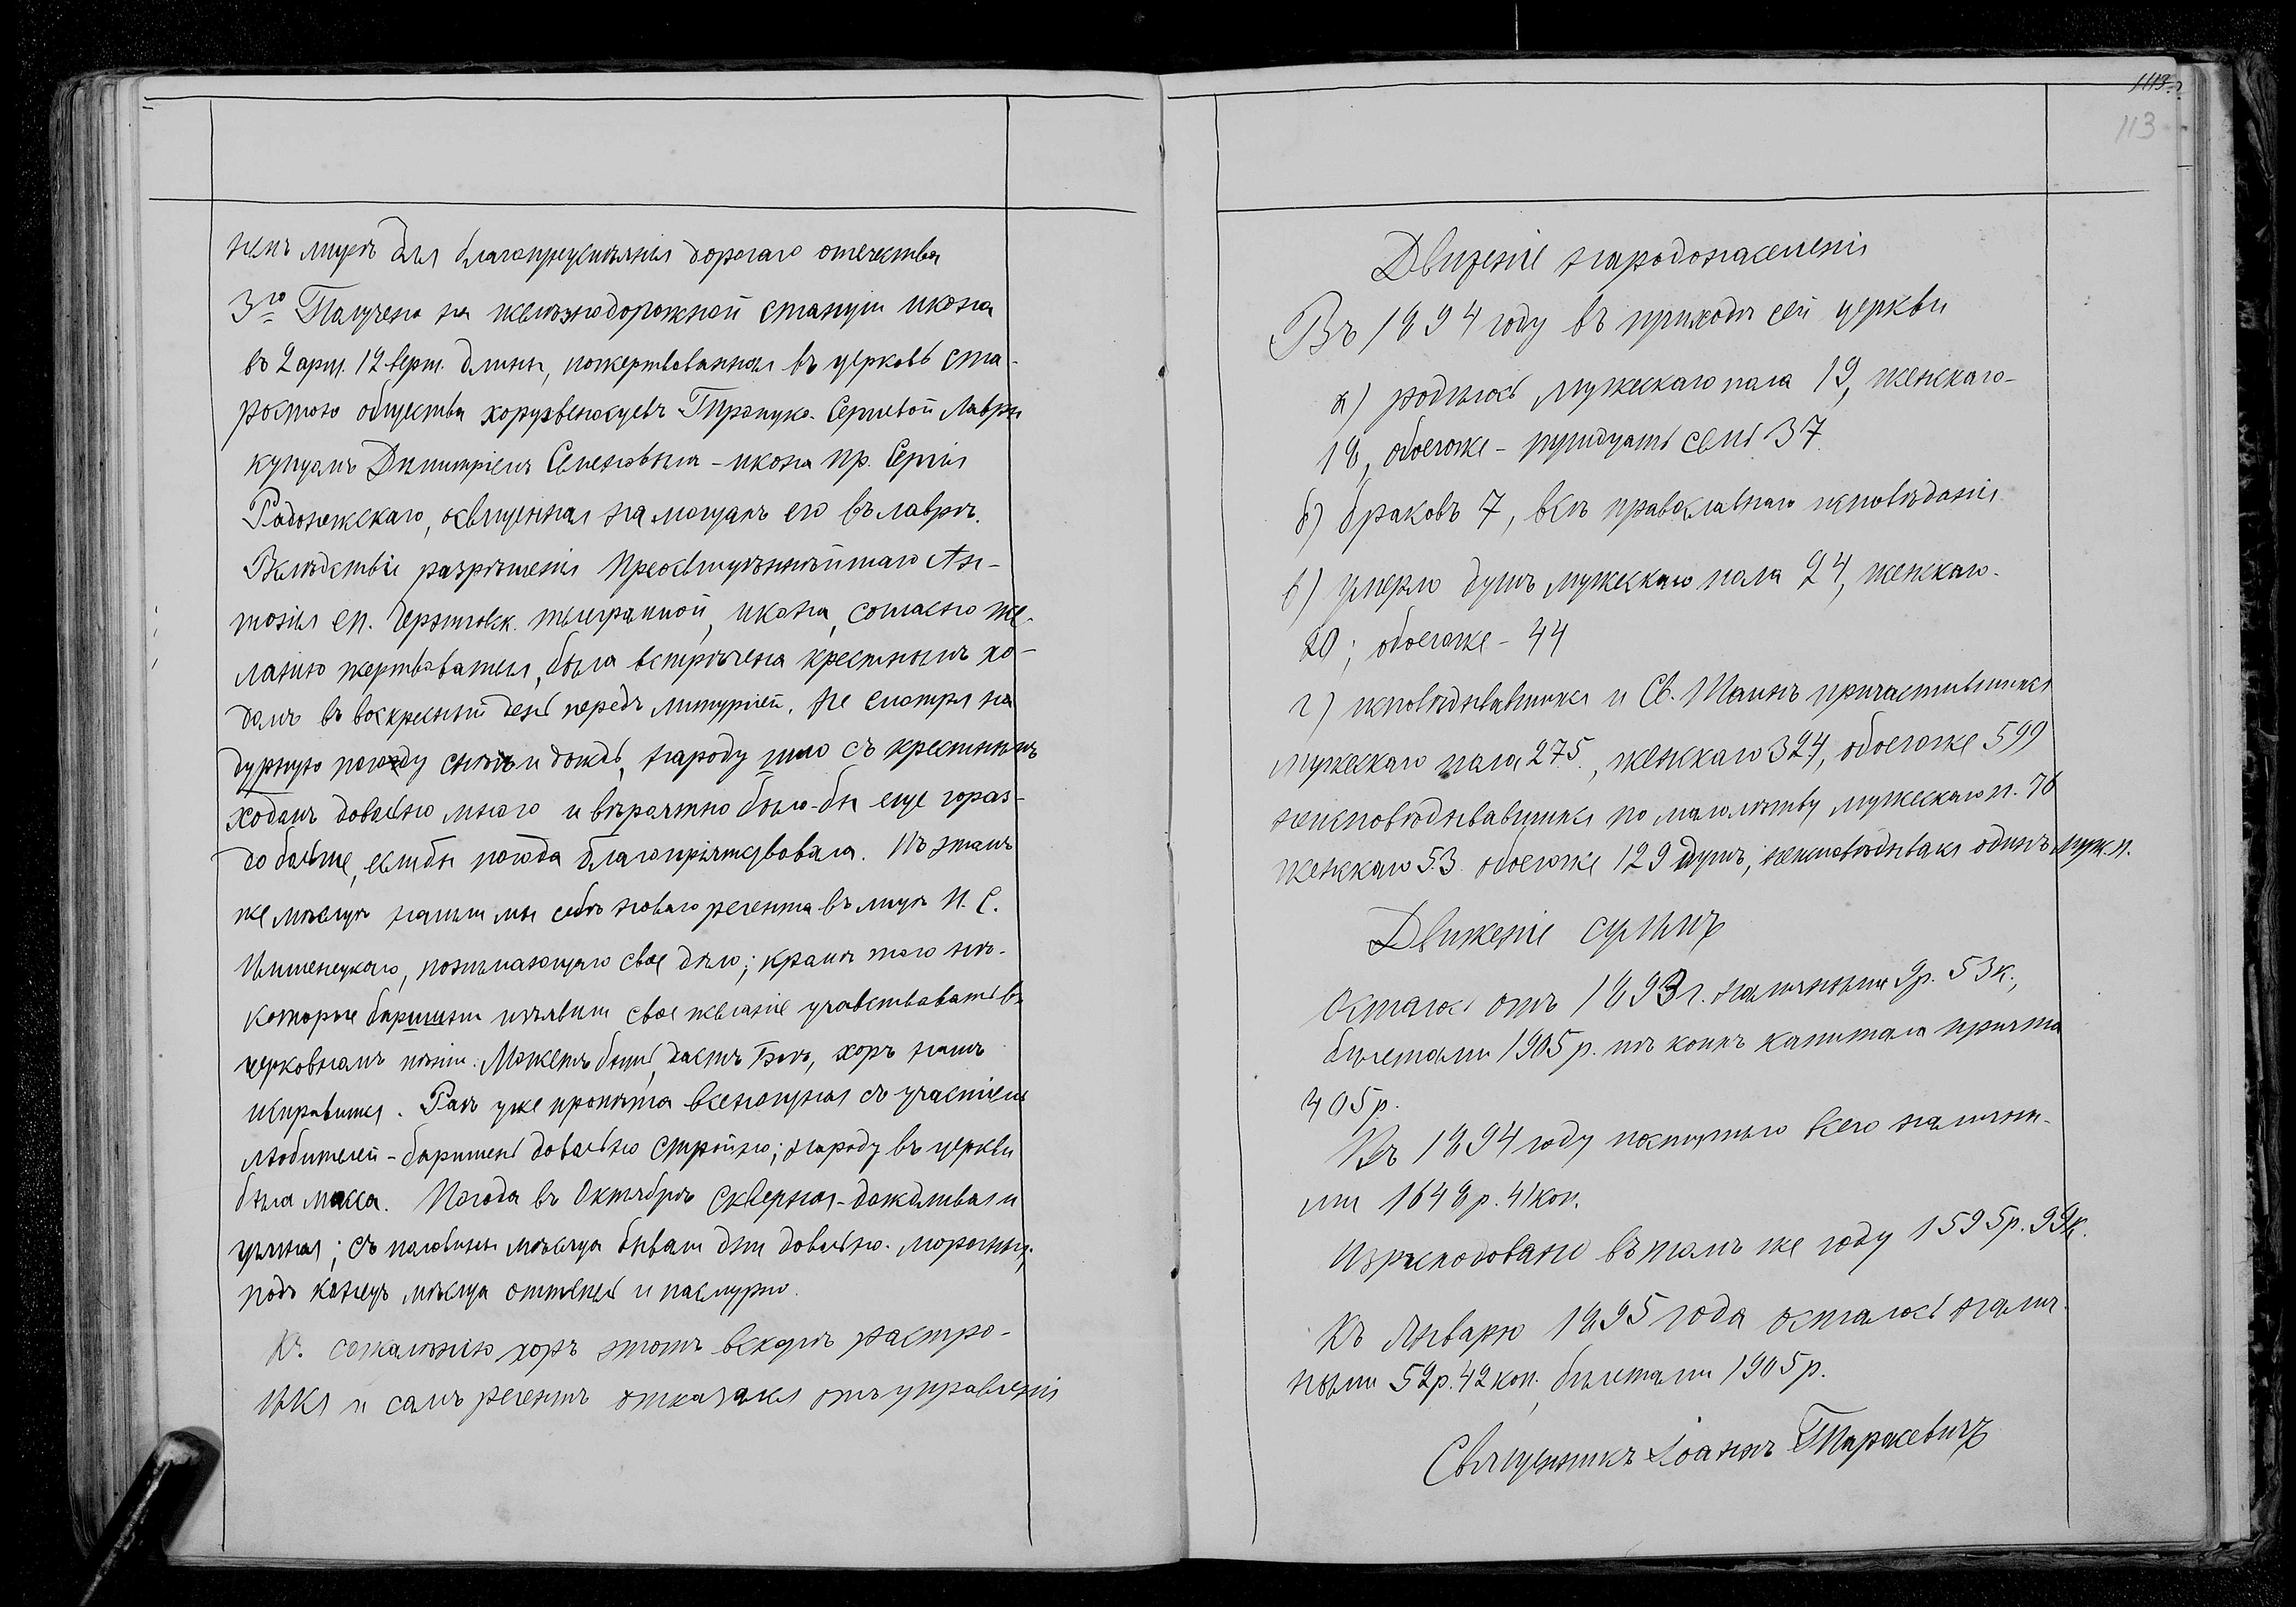 немъ мирѣ для благопреуспѣянія дорогаго отечества
3го Получена на желѣзнодорожной станціи икона
въ 2 арш. 12 верш. длины, пожертвованная въ церковь ста-
ростою общества хоругвеносцевъ Троицко-Сергіевой Лавры
купцомъ Димитріемъ Семеновымъ - икона пр. Сергія
Радонежскаго, освященная на мощахъ его въ лаврѣ.
Вслѣдствіе разрѣшенія Преосвященнѣйшаго Ан-
тонія еп. Черниговск. телеграммой, икона, согласно же-
ланію жертвователя, была встрѣчена крестнымъ хо-
домъ въ воскресный день передъ литургіей. Не смотря на
дурную погоду снѣгъ и дождь, народу шло съ крестнымъ
ходомъ довольно много и вѣроятно было-бы еще гораз-
до больше, еслибы погода благопріятствовала. Въ этомъ
же мѣсяцѣ нашли мы себѣ новаго регента въ лицѣ П. С.
понимающаго свое дѣло; кромѣ того нѣ-
которые барышни изъявили свое желаніе учавствовать въ
церковномъ пѣніи. Можетъ быть, дастъ Богъ, хоръ нашъ
исправится. Разъ уже пропѣта всенощная съ участіемъ
любителей - барышень довольно стройно; народу въ церкви
была масса. Погода въ Октябрѣ скверная - дождливая и
грязная; съ половины мѣсяца бывали дни довольно морозные,
подъ конецъ мѣсяца оттепель и пасмурно.
Къ сожалѣнію хоръ этотъ вскорѣ растро-
ился и самъ регентъ отказался отъ управленія
1113
113
Движеніе народонаселенія
Въ 1894 году въ приходѣ сей церкви
а) родилось мужескаго пола 19, женскаго-
18, обоегоже - тридцать семь 37
б) браковъ 7, всѣ православнаго исповѣданія
в) умерло душъ мужескаго пола 24, женскаго-
20; обоегоже - 44
г) исповѣдывавшихся и Св. Таинъ причастившихся
мужескаго пола 275, женскаго 324, обоегоже 599
неисповѣдывавшихся по малолѣтству мужескаго п. 76
женскаго 53 обоегоже 129 душъ, неисповѣдывался одинъ муж. п.
Движеніе суммъ
Осталось отъ 1893 г. наличными 9р. 53к.,
билетами 1905 р. изъ коихъ капитала причта
405 р.
Въ 1894 году поступило всего наличны-
ми 1648 р. 41 коп.
Израсходовано въ томъ же году 1595 р. 99к.
Къ Январю 1895 года осталось налич-
ными 52 р. 42 коп. билетами 1905 р.
Священникъ Іоаннъ Тарасевичъ